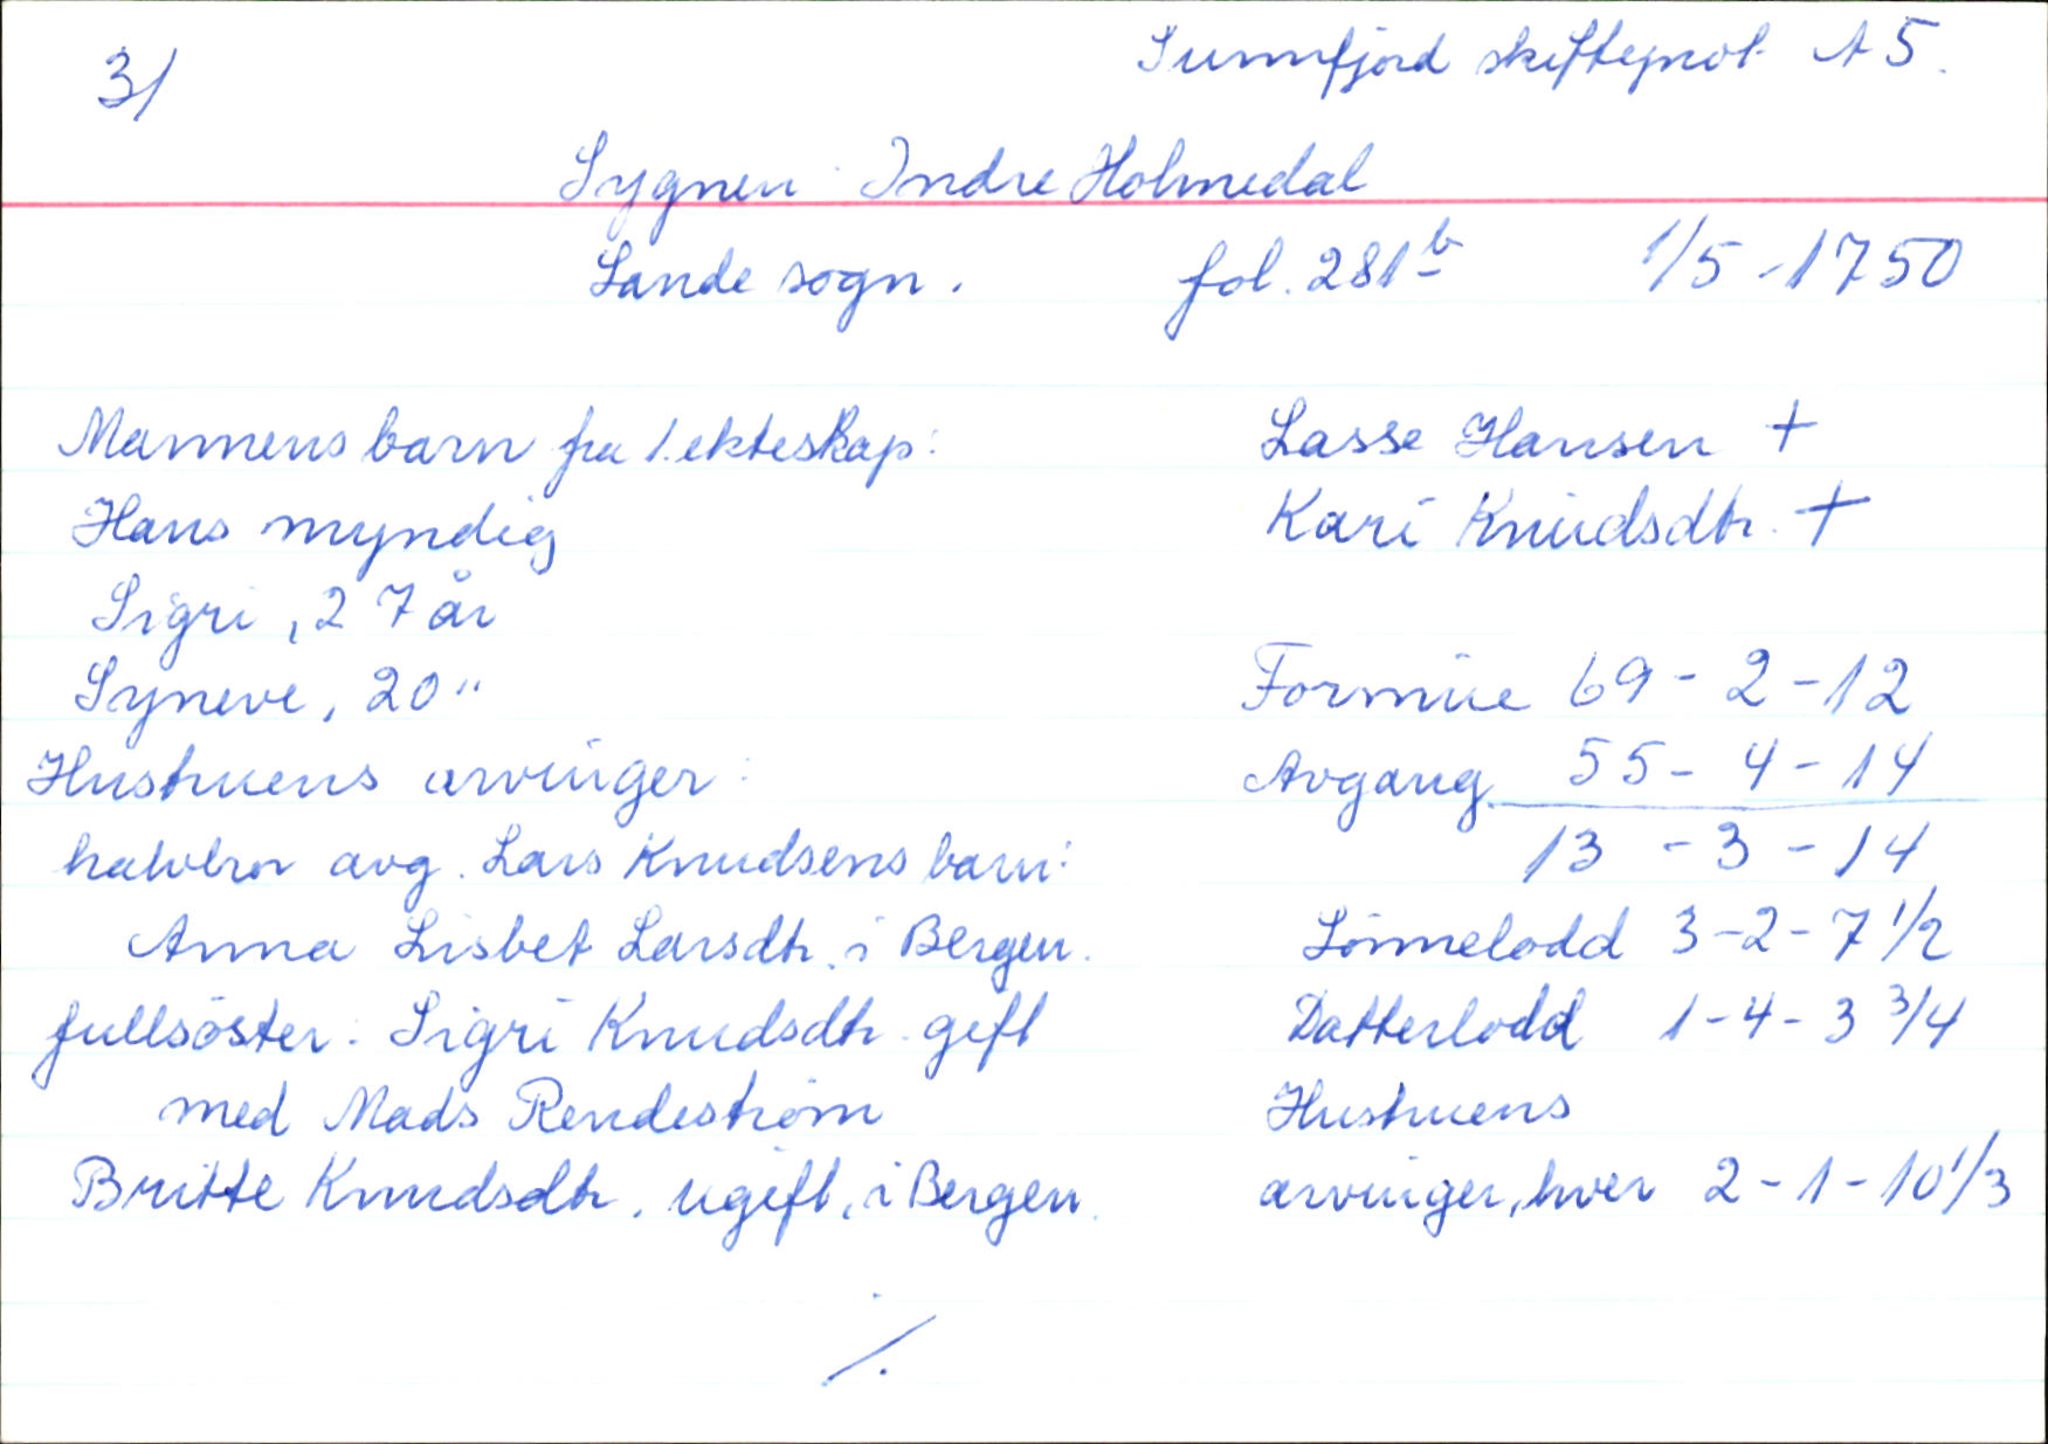 3/
Sunnfjord skifteprot A 5.
Sygnen Indre Holmedal
Sande sogn. fol. 281 b 1/5 - 1750
Mannens barn fra 1. ekteskap:
Hans myndig
Sigri, 27 år
Syneve, 20 "
Hustruens arvinger:
halvbror avg. Lars Knudsens barn:
Anna Lisbet Larsdtr. i Bergen.
fullsöster: Sigri Knudsdtr gift
med Mads Rendeström
Britte Knudsdtr. ugift, i Bergen.
Lasse Hansen +
Kari Knudsdtr. +
Formue 69 - 2 - 12
Avgang 55 - 4 - 14
13 - 3 - 14
Sönnelodd 3 - 2 - 7 1/2
Datterlodd 1 - 4 - 3 3/4
Hustruens
arvinger, hver 2 - 1 - 10 1/3
/.